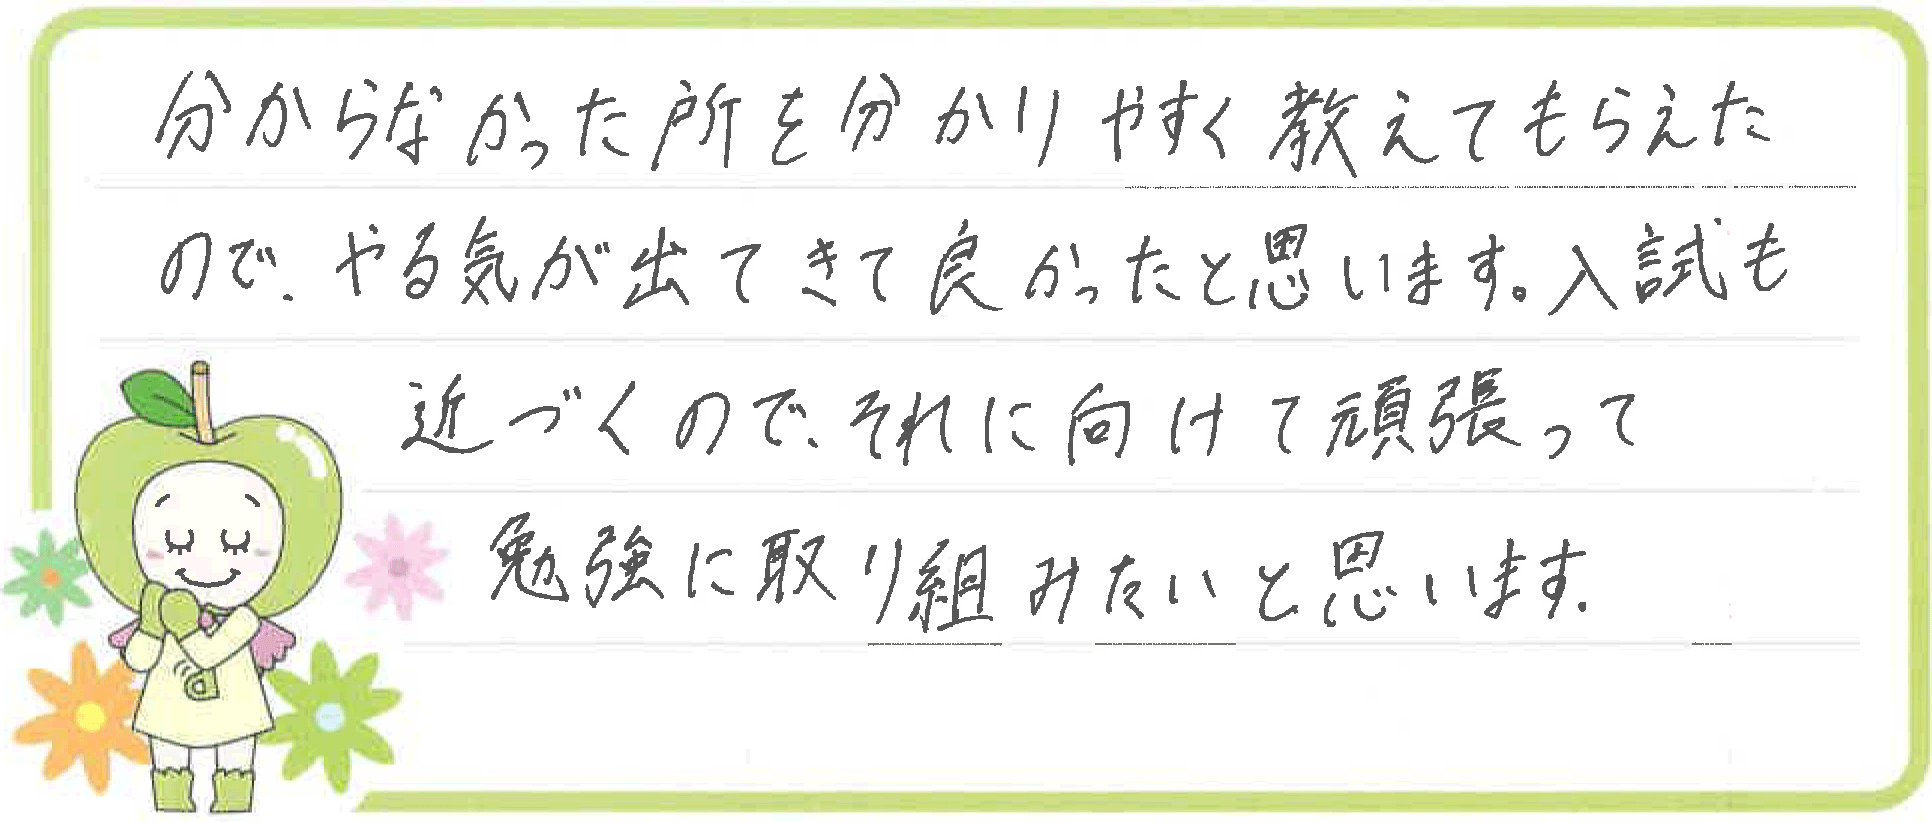 分からなかった所を分かりやすく教えてもらえた
ので、やる気が出てきて良かったと思います。入試も
近づくので、それに向けて頑張って
勉強に取り組みたいと思います。